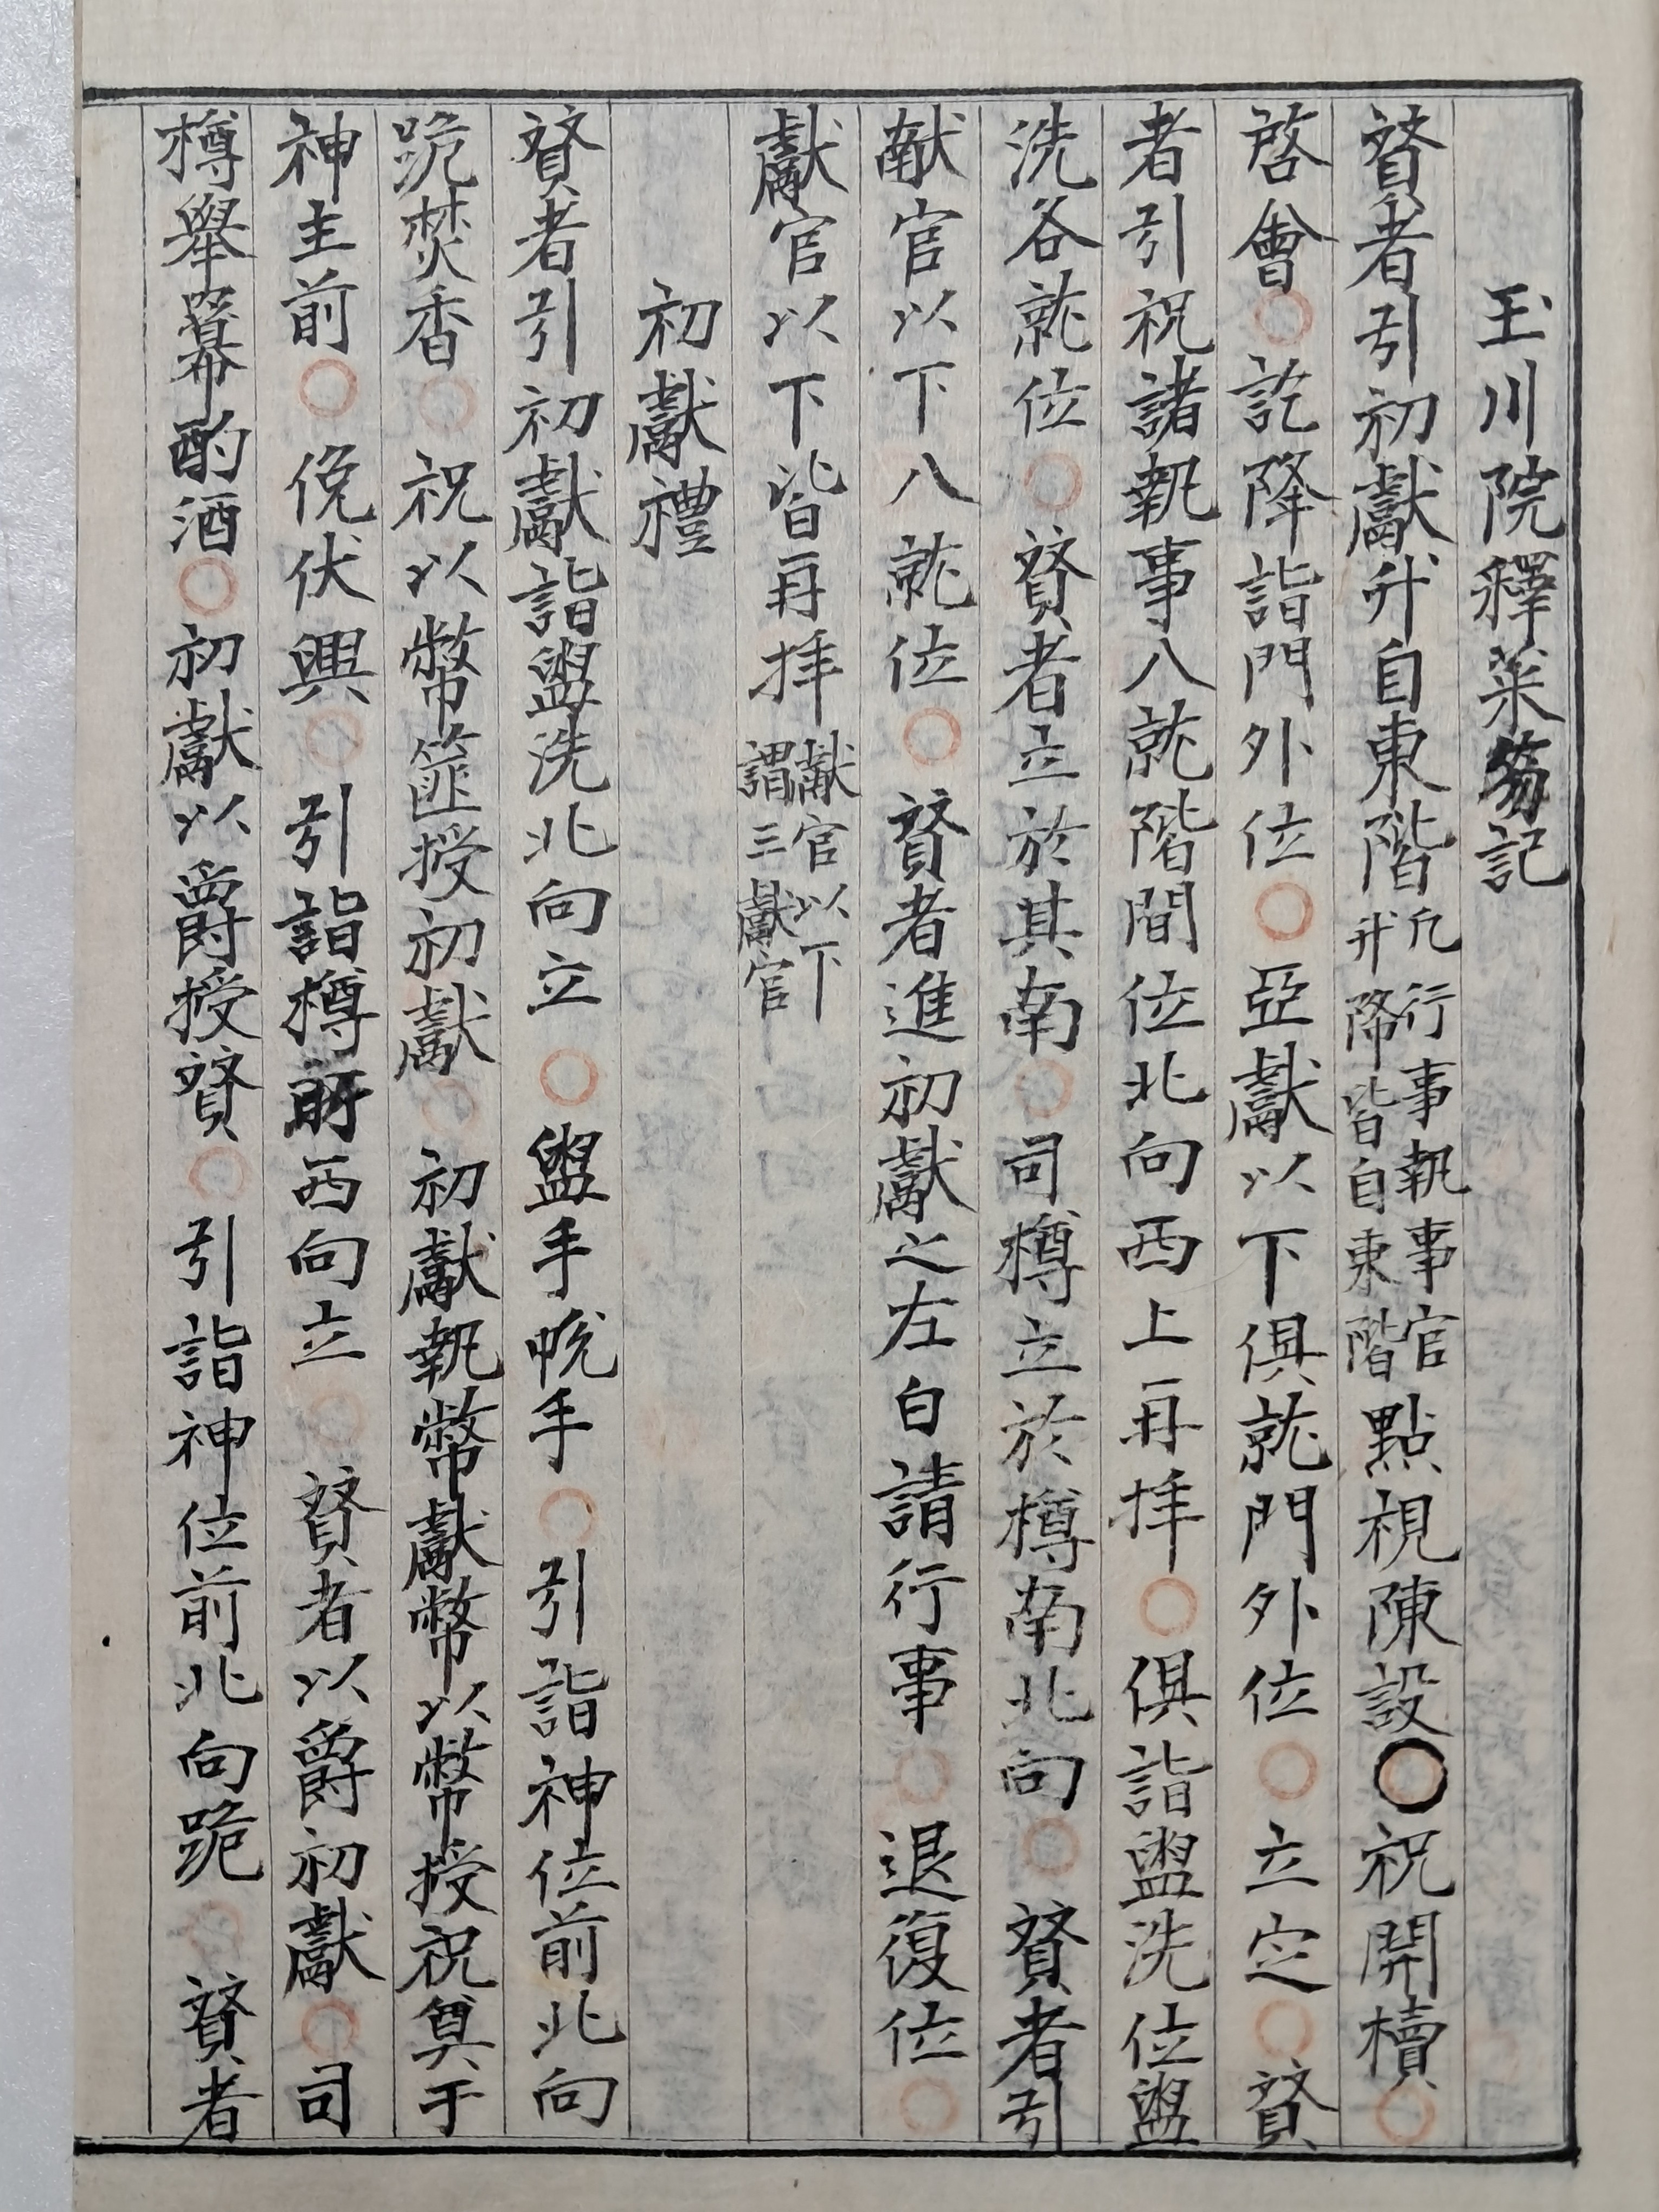 玉川院釋菜笏記
賛者引初獻升自東階凡行事執事官升降皆自東階點視陳設○祝開櫝○
啓會○訖降詣門外位○亞獻以下俱就門外位○立定○賛
者引祝諸執事入就階間位北向西上再拝○俱詣盥洗位盥
洗各就位○賛者立於其南○司樽立於樽南北向○賛者引
献官以下入就位○賛者進初獻之左白請行事○退復位○
獻官以下皆再拝獻官以下謂三獻官
初獻禮
賛者引初獻詣盥洗北向立○盥手帨手○引詣神位前北向
跪焚香○祝以幣篚授初獻○初獻執幣獻幣以幣授祝奠于
神主前○俛伏興○引詣樽所西向立○賛者以爵初獻○司
樽舉冪酌酒○初獻以爵授賛○引詣神位前北向跪○賛者